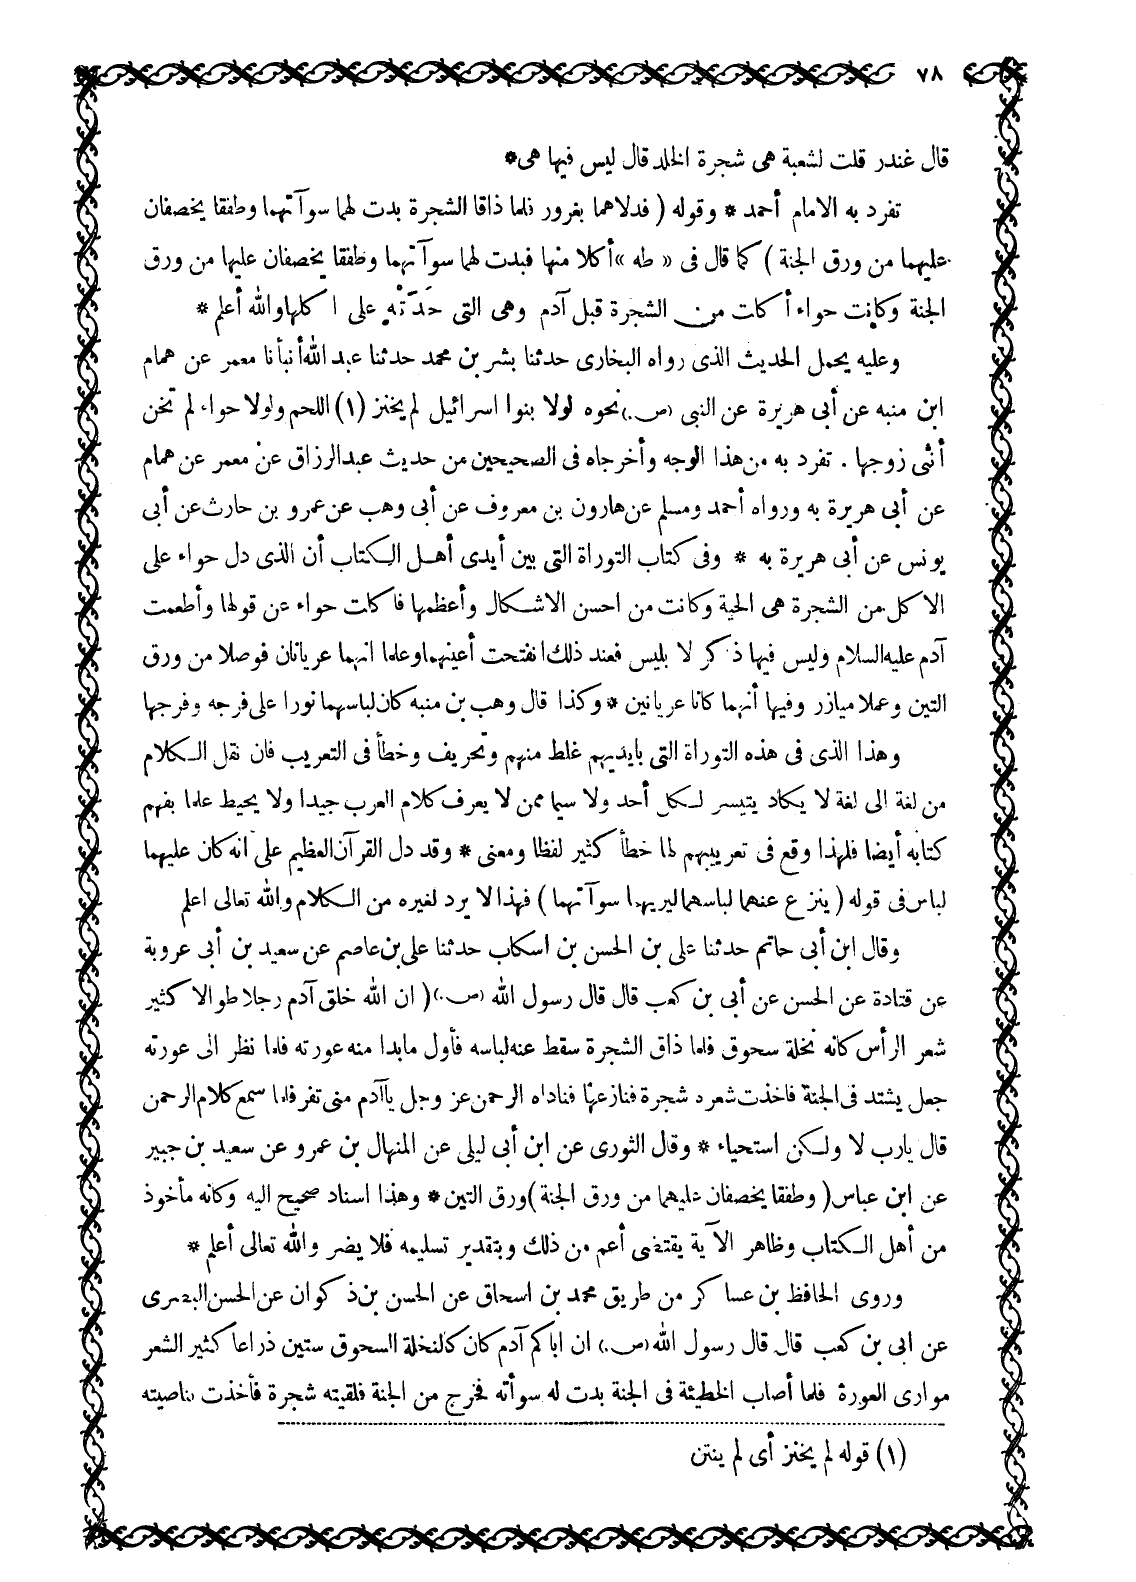 ٧٨
قال غندر قلت لشعبة هى شجرة الخلد قال ليس فيها هى*
تفرد به الامام أحمد * وقوله ( فدلاهما بغرور فلما ذاقا الشجرة بدت لهما سوآتهما وطفقا يخصفان
عليهما من ورق الجنة ) كما قال فى « طه » أكلا منها فبدت لهما سوآتهما وطفقا يخصفان عليها من ورق
الجنة وكانت حواء أكات من الشجرة قبل آدم وهى التى حَدَتْه على اكلها والله أعلم *
وعليه يحمل الحديث الذى رواه البخارى حدثنا بشر بن محمد حدثنا عبد الله أنبأنا معمر عن همام
ابن منبه عن أبى هريرة عن النبى (ص.) نحوه لولا بنوا اسرائيل لم يخنز (١) اللحم ولولا حواء لم تخن
أنثى زوجها . تفرد به من هذا الوجه وأخرجاه فى الصحيحين من حديث عبد الرزاق عن معمر عن همام
عن أبى هريرة به ورواه أحمد ومسلم عن هارون بن معروف عن أبى وهب عن عمرو بن حارث عن أبى
يونس عن أبى هريرة به * وفى كتاب التوراة التى بين أيدى أهل الكتاب أن الذى دل حواء على
الاكل من الشجرة هى الحية وكانت من احسن الاشكال وأعظمها فاكات حواء عن قولها وأطعمت
آدم عليه السلام وليس فيها ذكر لا بليس فعند ذلك انفتحت أعينهما وعلما انهما عريانان فوصلا من ورق
التين وعملا ميازر وفيها أنهما كانا عريانين * وكذا قال وهب بن منبه كان لباسهما نورا على فرجه وفرجها
وهذا الذى فى هذه التوراة التى بايديهم غلط منهم وتحريف وخطأ فى التعريب فان نقل الكلام
من لغة الى لغة لا يكاد يتيسر لكل أحد ولا سيما ممن لا يعرف كلام العرب جيدا ولا يحيط علما بفهم
كتابه أيضا فلهذا وقع فى تعريبهم لها خطأ كثير لفظا ومعنى * وقد دل القرآن العظيم على انه كان عليهما
لباس فى قوله ( ينزع عنهما لباسهما ليريهما سوآتهما ) فهذا لا يرد لغيره من الكلام والله تعالى اعلم
وقال ابن أبى حاتم حدثنا على بن الحسن بن اسكاب حدثنا على بن عاصم عن سعيد بن أبى عروبة
عن قتادة عن الحسن عن أبى بن كعب قال قال رسول الله (ص.) ( ان الله خلق آدم رجلا طوالا كثير
شعر الرأس كانه نخلة سحوق فلما ذاق الشجرة سقط عنه لباسه فأول مابدا منه عورته فلما نظر الى عورته
جعل يشتد فى الجنة فاخذت شعره شجرة فنازعها فناداه الرحمن عز وجل ياآدم منى تفر فلما سمع كلام الرحمن
قال يارب لا ولكن استحياء * وقال الثورى عن ابن أبى ليلى عن المنهال بن عمرو عن سعيد بن جبير
عن ابن عباس ( وطفقا يخصفان عليهما من ورق الجنة ) ورق التين * وهذا اسناد صحيح اليه وكانه مأخوذ
من أهل الكتاب وظاهر الآية يقتضى أعم من ذلك وبتقدير تسليمه فلا يضر والله تعالى أعلم *
وروى الحافظ بن عساكر من طريق محمد بن اسحاق عن الحسن بن ذكوان عن الحسن البصرى
عن ابى بن كعب قال قال رسول الله (ص.) ان اباكم آدم كان كالنخلة السحوق ستين ذراعا كثير الشعر
موارى العورة فلما أصاب الخطيئة فى الجنة بدت له سوأته فخرج من الجنة فلقيته شجرة فأخذت بناصيته
(١) قوله لم يخنز أى لم ينتن